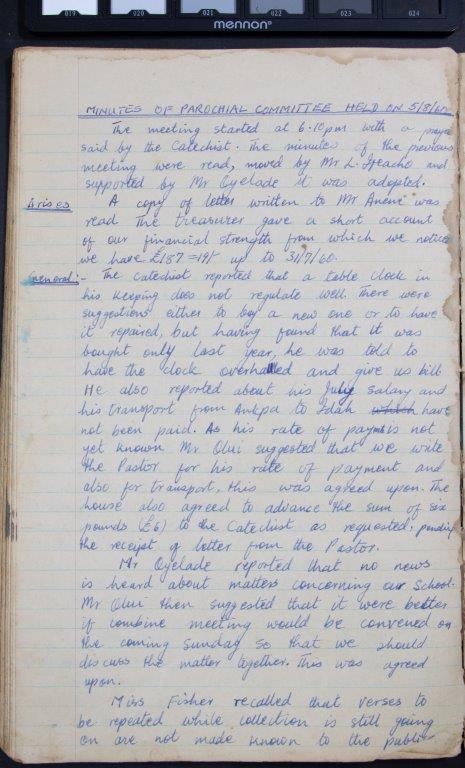 019 020 021 022 023 024
mennon®
MINUTES OF PAROCHIAL COMMITTEE HELD ON 5/8/60
The meeting started at 6.10pm with a praye
said by the Catechist. The minutes of the previous
meeting were read, moved by Mr L. Ifeacho and
supported by Mr Oyelade it was adopted.
Arises A copy of letter written to Mr Anene was
read The treasurer gave a short account
of our financial strength from which we notice
we have £187=19/- up to 31/7/60.
General:- The Catechist reported that a table clock in
his keeping does not regulate well. There were
suggestions either to buy a new one or to have
it repaired, but having found that it was
bought only last year, he was told to
have the clock overhauled and give us bill
He also reported about his July salary and
his transport from Ankpa to Idah which have
not been paid. As his rate of paymt is not
yet known Mr Olui suggested that we write
the Pastor for his rate of payment and
also for transport, this was agreed upon. The
house also agreed to advance the sum of six
pounds (£6) to the Catechist as requested, pending
the receipt of letter from the Pastor.
Mr Oyelade reported that no news
is heard about matters concerning our School.
Mr Olui then suggested that it were better
if combine meeting would be convened on
the coming Sunday so that we should
discuss the matter together. This was agreed
upon.
Miss Fisher recalled that verses to
be repeated while collection is still going
on are not made known to the public